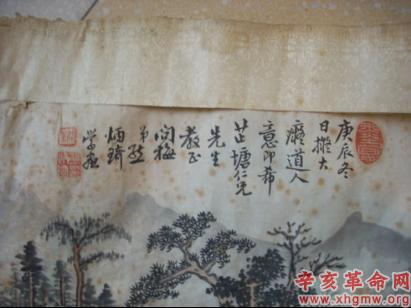 庚辰冬
日拟大
癡道人
意即希
芷塘仁兄
先生
教正
问梅
弟
炳琦
辛亥革命网
www.xhgmw.org